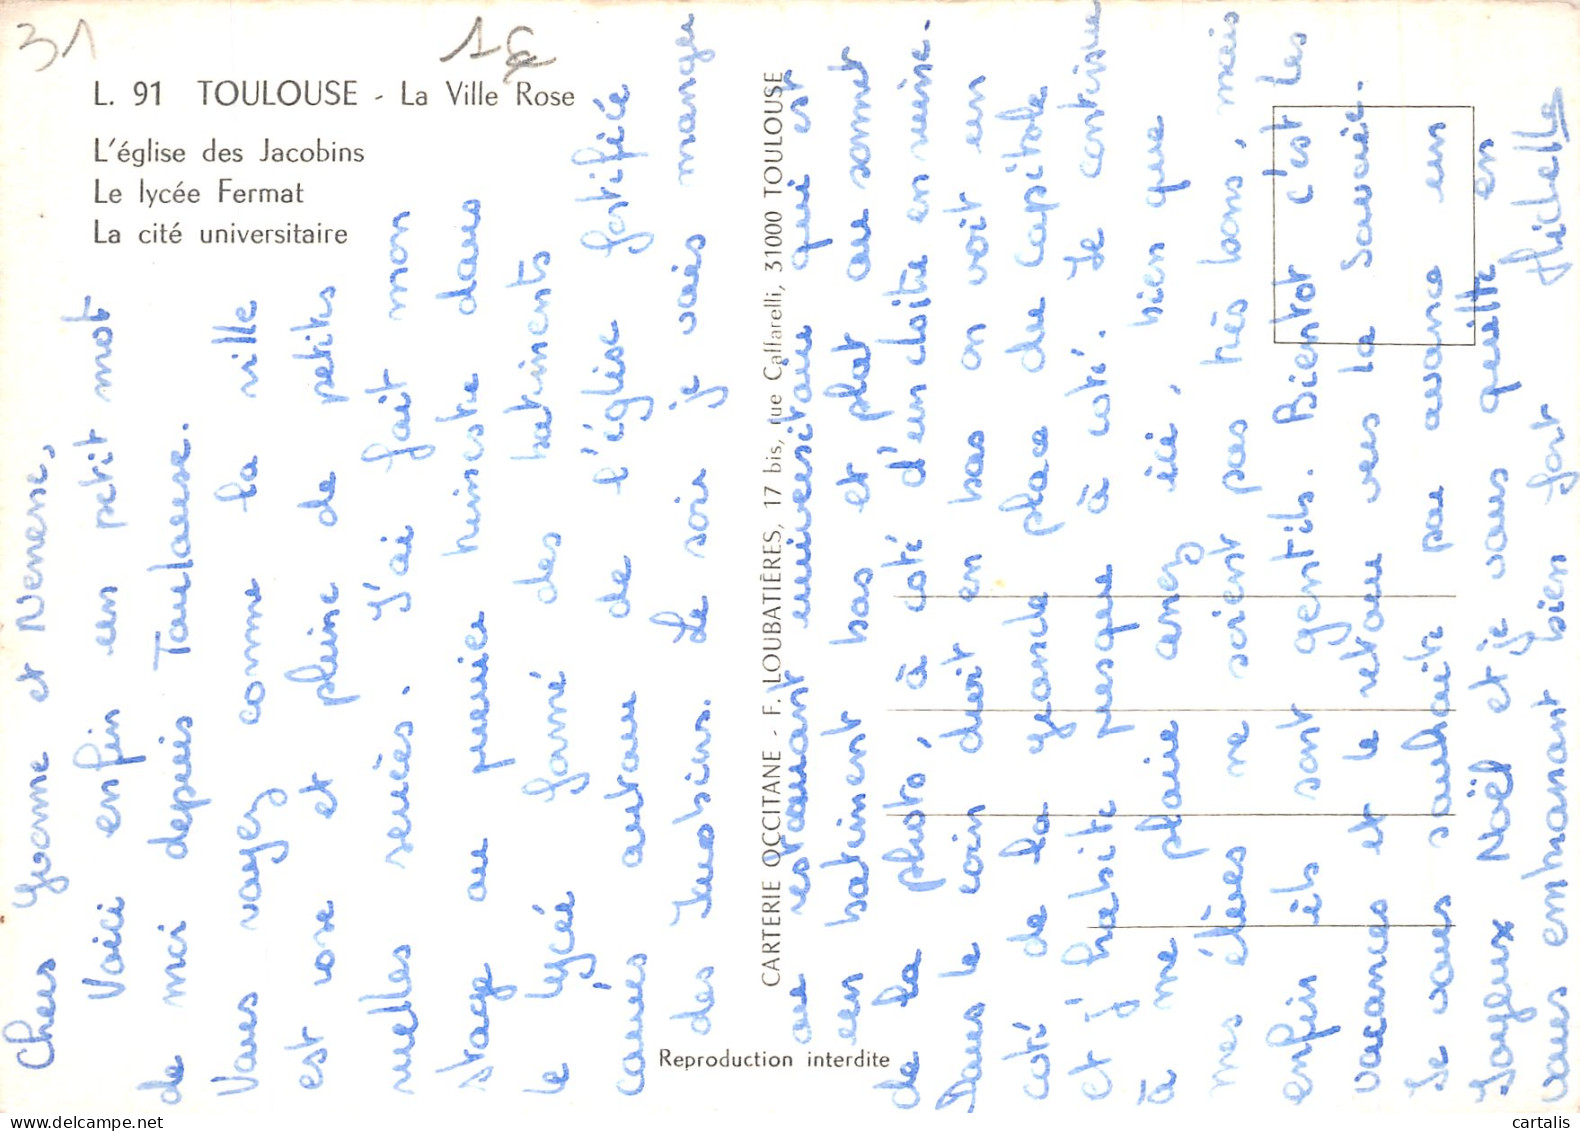 31
1€
L. 91 TOULOUSE - La Ville Rose
L'église des Jacobins
Le lycée Fermat
La cité universitaire
Chers Yvonne et Nenene,
Voici enfin un petit mot
de moi depuis Toulouse.
Vous voyez comme la ville
est rose et pleine de petites
ruelles serrées. J'ai fait mon
stage au premier trimestre dans
le lycée formé des batiments
carrés autour de l'église fortifiée
des Jacobins. Le soir je vais manger
au restaurant universitaire qui est
un batiment bas et plat au sommet
de la photo, à coté d'un cloitre en ruine.
Dans le coin droit en bas on voit un
coté de la grande place du Capitole
et j'habite presque à coté. Je continue
à me plaire assez ici, bien que
mes élèves ne soient pas très bons, mais
enfin ils sont gentils. Bientot c'est les
vacances et le retour vers la Savoie.
Je vous souhaite par avance un
Joyeux Noël et je vous quitte en
vous embrassant bien fort Michelle
CARTERIE OCCITANE - F. LOUBATIÈRES, 17 bis, rue Caffarelli, 31000 TOULOUSE
Reproduction interdite
cartalis